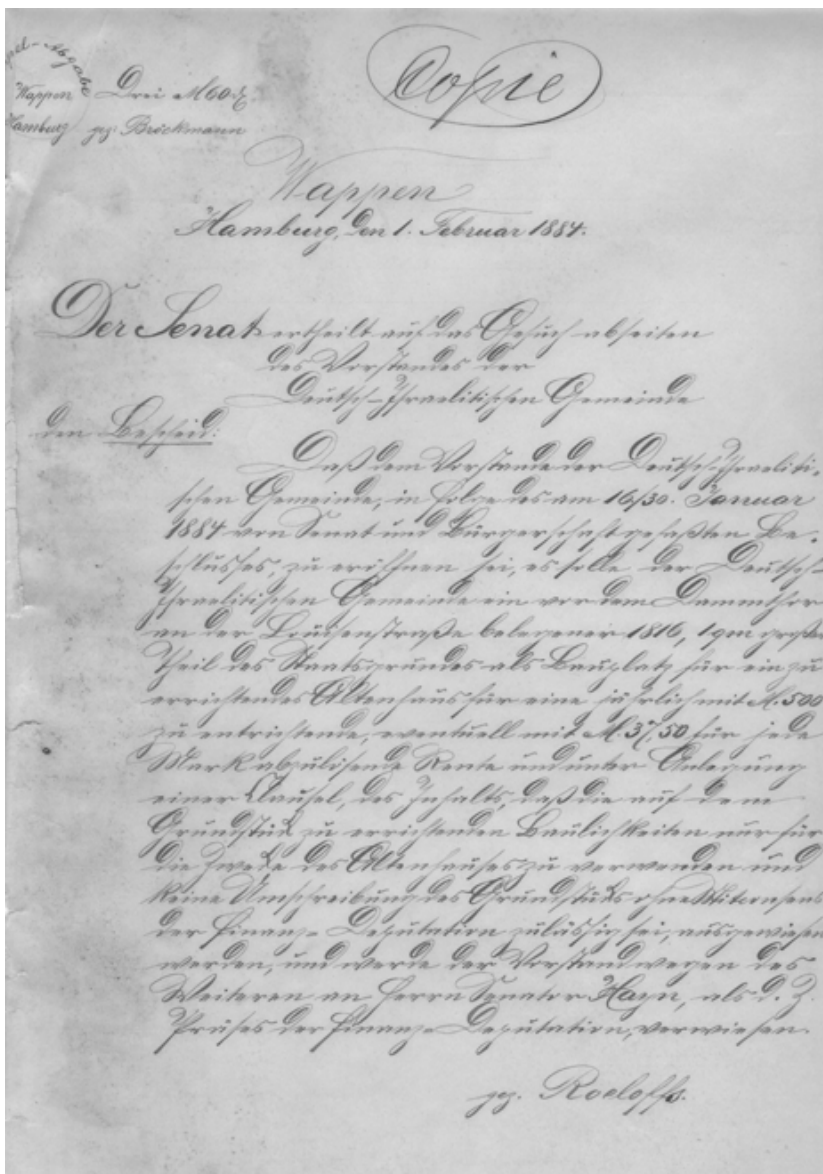 Stempel-Abgabe
Wappen
Hamburg
Drei M 60 ₰.
gez. Bröckmann
Copie
Wappen
Hamburg, den 1. Februar 1884.
Der Senat ertheilt auf das Gesuch abseiten
des Vorstandes der
Deutsch-Israelitischen Gemeinde
den Bescheid:
Daß dem Vorstande der Deutsch-Israeliti-
schen Gemeinde, in Folge des am 16/30. Januar
1884 von Senat und Bürgerschaft gefaßten Be-
schlusses, zu eröffnen sei, es solle der Deutsch-
Israelitischen Gemeinde ein vor dem Dammthor
an der belegener 1816, 1 qm großer
Theil des Staatsgrundes als Bauplatz für ein zu
errichtendes Altenhaus für eine jährlich mit M. 500
zu entrichtende, eventuell mit M. 37,50 für jede
Mark abzulösende Rente und unter Anlegung
einer Clausel, des Inhalts, daß die auf dem
Grundstück zu errichtenden Baulichkeiten nur für
die Zwecke des Altenhauses zu verwenden und
keine Umschreibung des Grundstücks ohne Mitconsens
der Finanz-Deputation zulässig sei, ausgewiesen
werden, und werde der Vorstand wegen des
Weiteren an Herrn Senator Hayn, als d. Z.
Präses der Finanz-Deputation, verwiesen.
gez. Roeloffs.